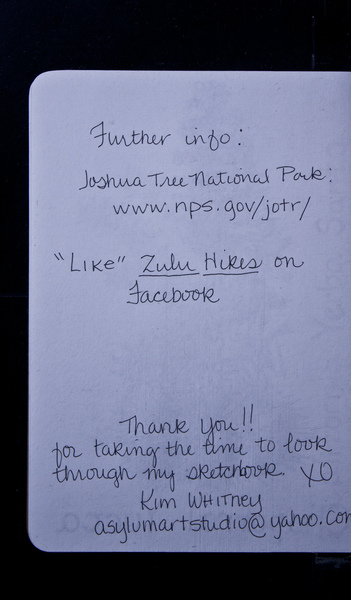 Further info:
Joshua Tree National Park:
www.nps.gov/jotr/
"Like" Zulu Hikes on
Facebook
Thank you!!
for taking the time to look
through my sketchbook. XO
Kim Whitney
asylumartstudio@yahoo.com